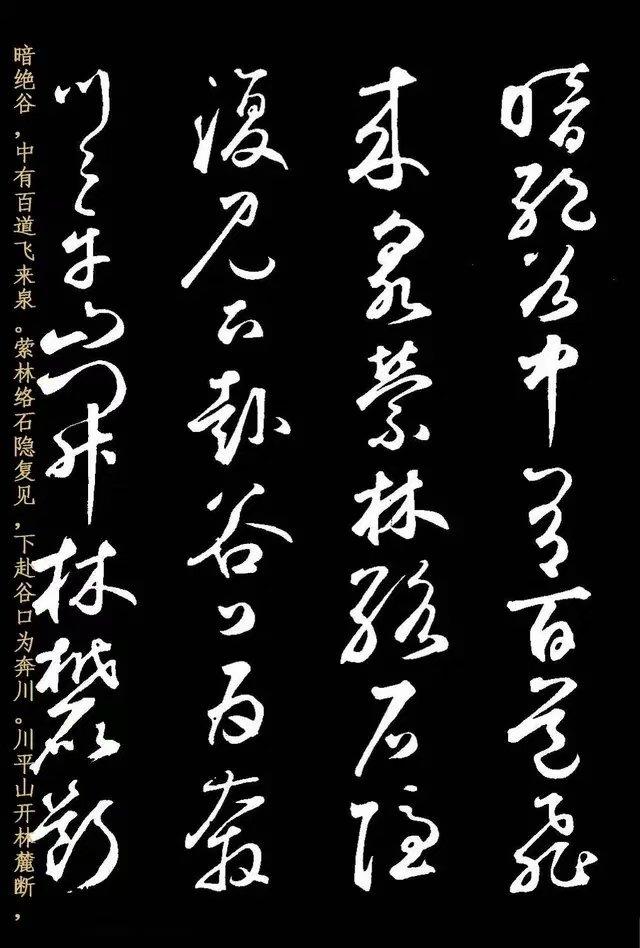 暗绝谷中有百道飞
来泉萦林络石隐
复见下赴谷口为奔
川〻平山开林麓断
暗绝谷，中有百道飞来泉。萦林络石隐复见，下赴谷口为奔川。川平山开林麓断，